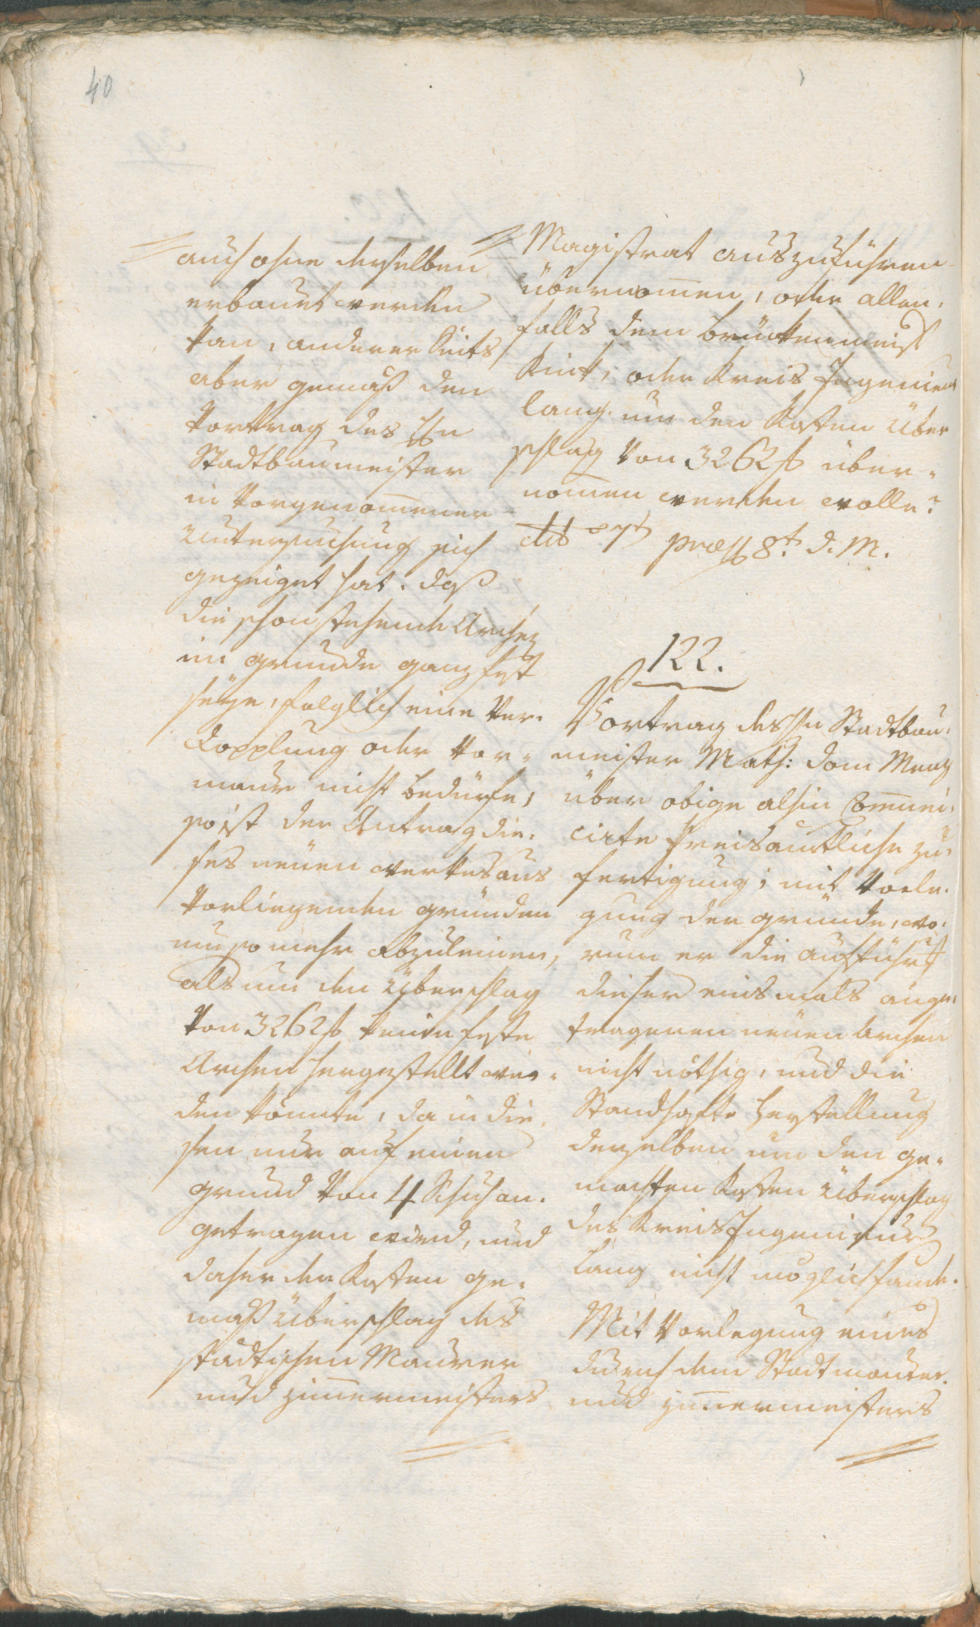 40
auch ohne derselben
erbauet werden
kan, anderer Seits
aber gemäß den
Vortrag des Hn
Stadtbaumeister
in Vorgenom̄ener
Untersuchung sich
gezeiget hat, daß
die schon stehende Archen
im grunde ganz fest
seÿe, folglich eine Ver-
dopplung oder Vor-
mauer nicht bedürfe;
so ist der Antrag die-
ses neüen werkes aus
Vorliegenden gründen
um so mehr abzuleinen,
als um den Überschlag
Von 3262 f keine feste
Archen hergestellt wer-
den könnte, da in die
sen nur auf einen
grund Von 4 Schuh an-
getragen wird, und
daher der Kosten ge-
mäß Überschlag des
städtischen Maurer
und zim̄ermeisters
Magistrat auszuführen
übernom̄en, oder allen-
falls dem brückenmeist
Rint, oder Kreis Ingenieur
Lang um den Kosten Über
schlag Von 3262 f über-
nom̄en werden wolle?
dto 7t præss 8t. d. M.
122.
Vortrag des Hn Stadtbau-
meister Math: Dom Meng
über obige alhin Com̄uni-
cirte Kreisämtliche zu-
fertigung; mit Vorle-
gung der gründe, wo-
rum er die aufführung
dieser einsmals ange-
tragenen neüen Archen
nicht nöthig, und die
Standhafte Herstellung
derselben um den ge-
machten Kosten Überschlag
des Kreis Ingenieur
Lang nicht möglich fande.
Mit Vorlegung eines
durch dem Stadtmaurer
und zim̄ermeisters